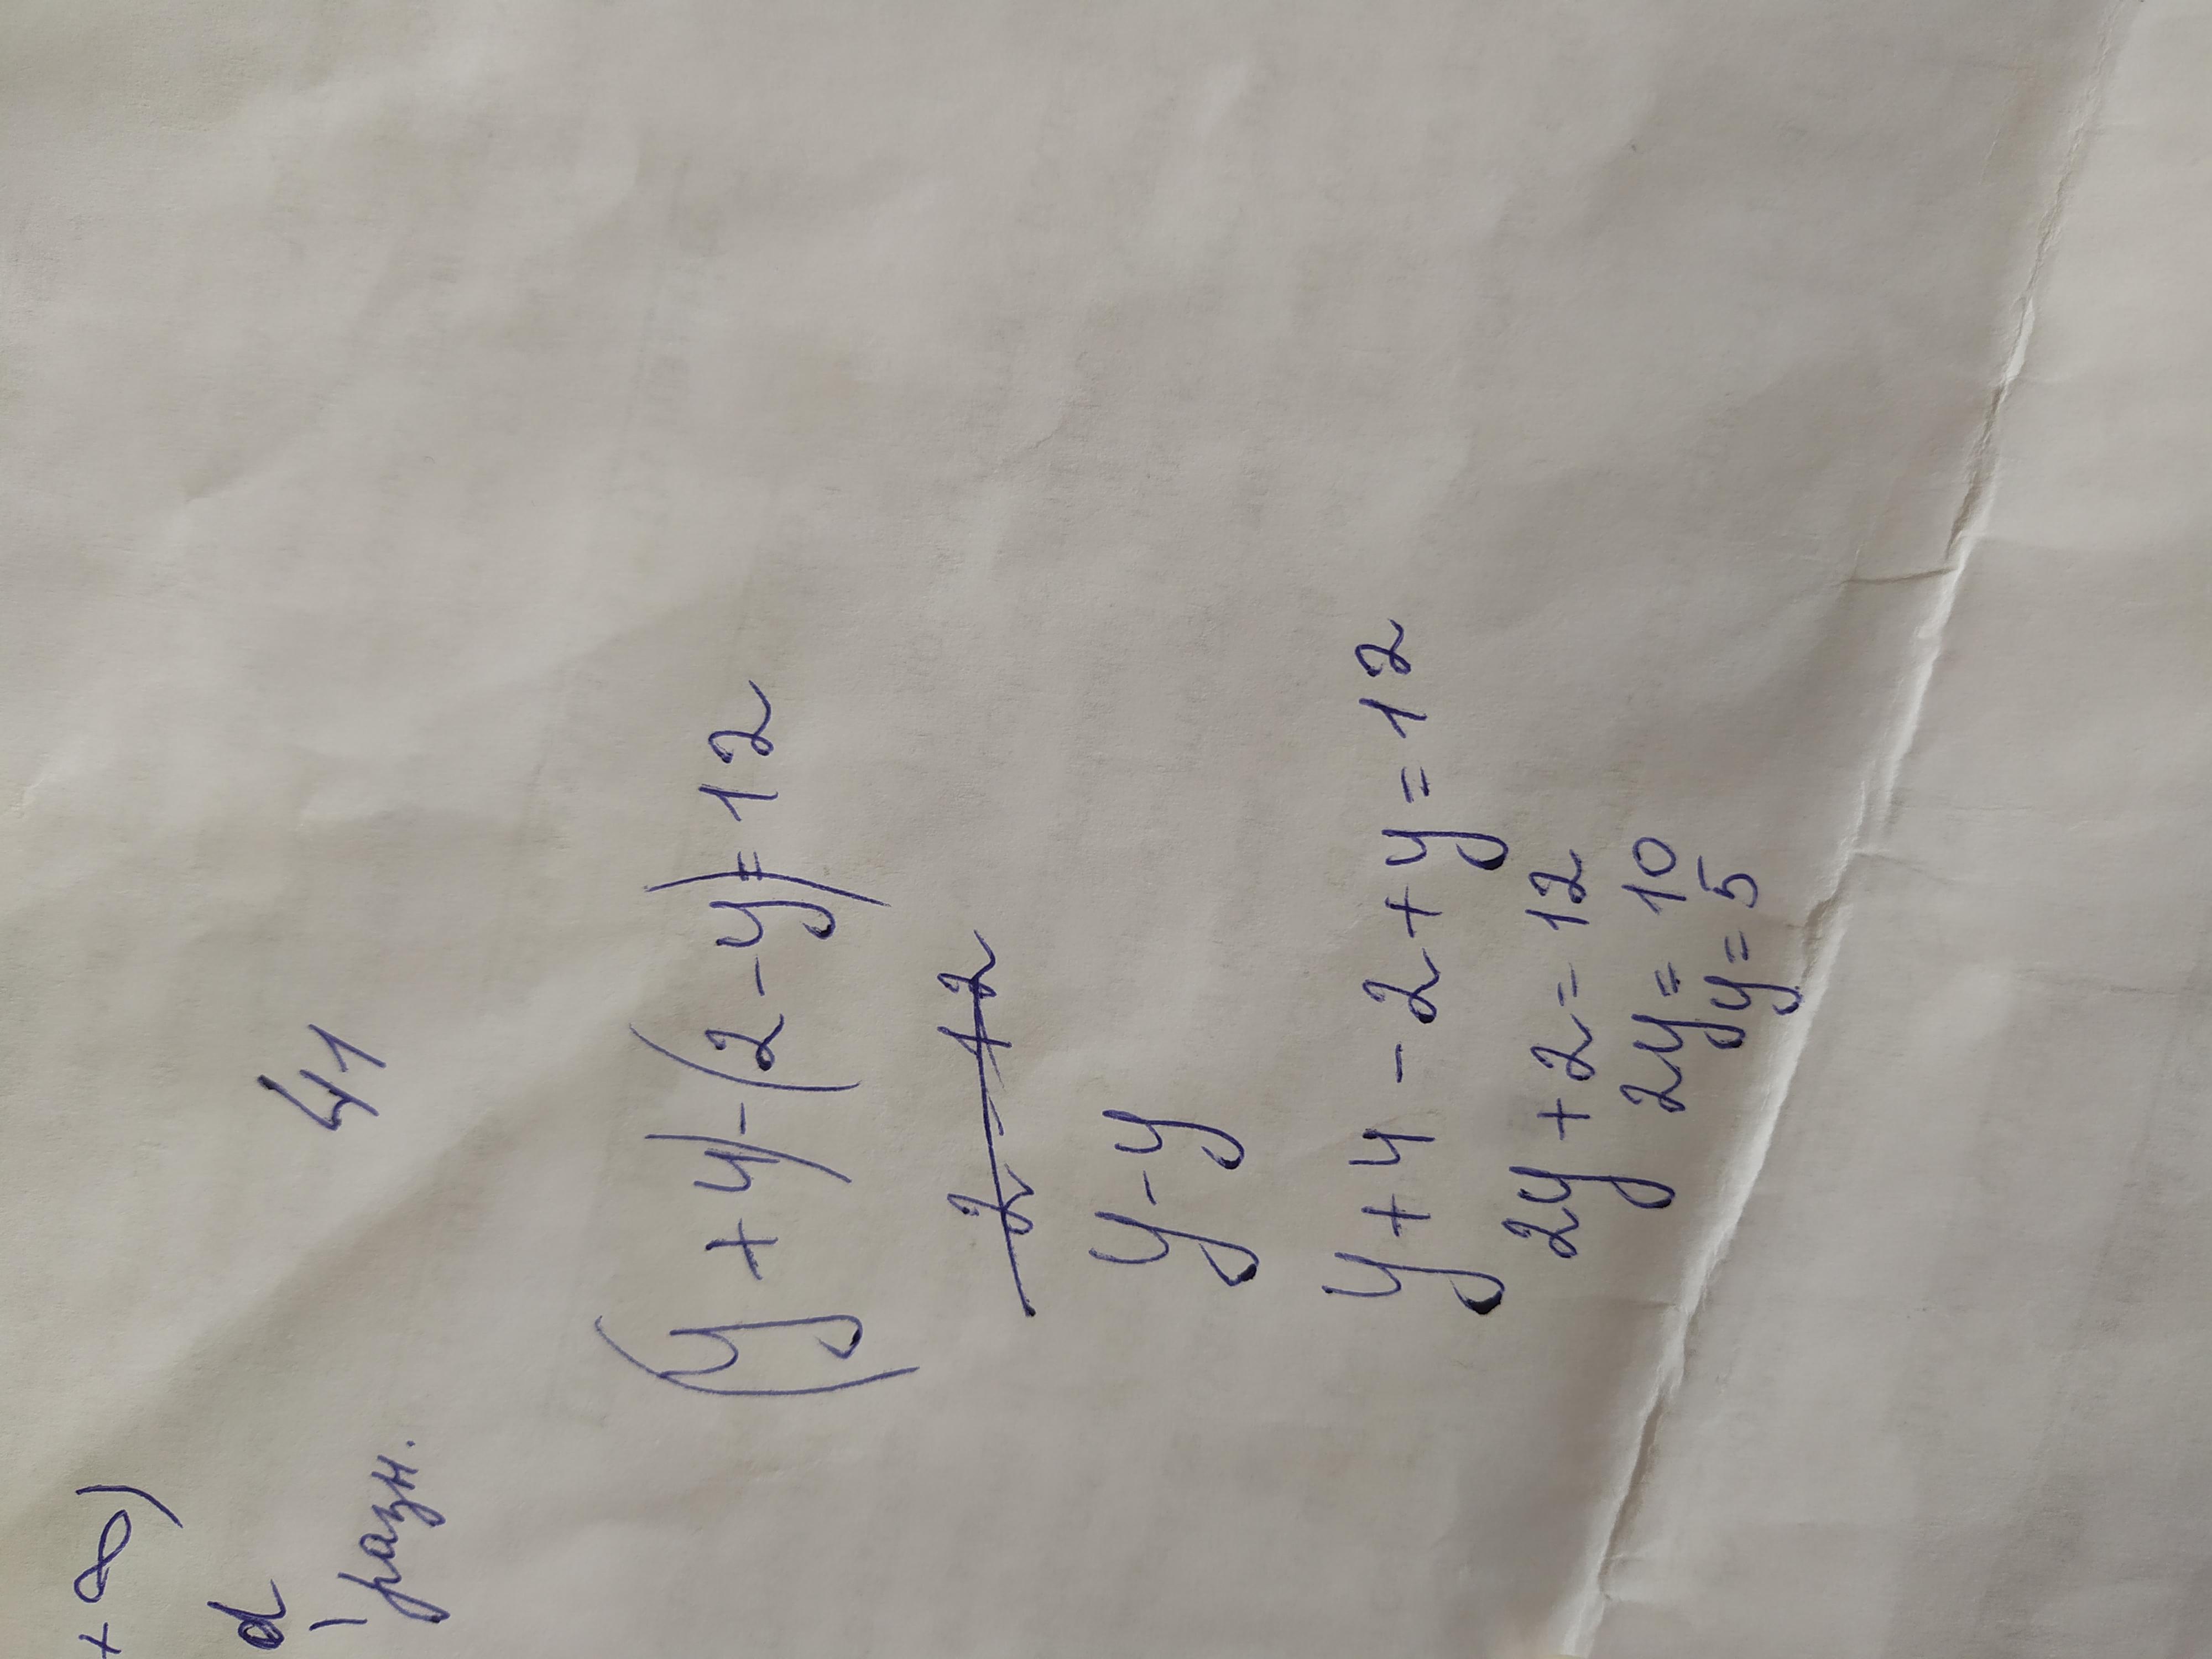 + ∞)
d
41
разн.
(y + 4) - (2 - y) = 12
2 - 12
y - y
y + 4 - 2 + y = 12
2y + 2 = 12
2y = 10
y = 5